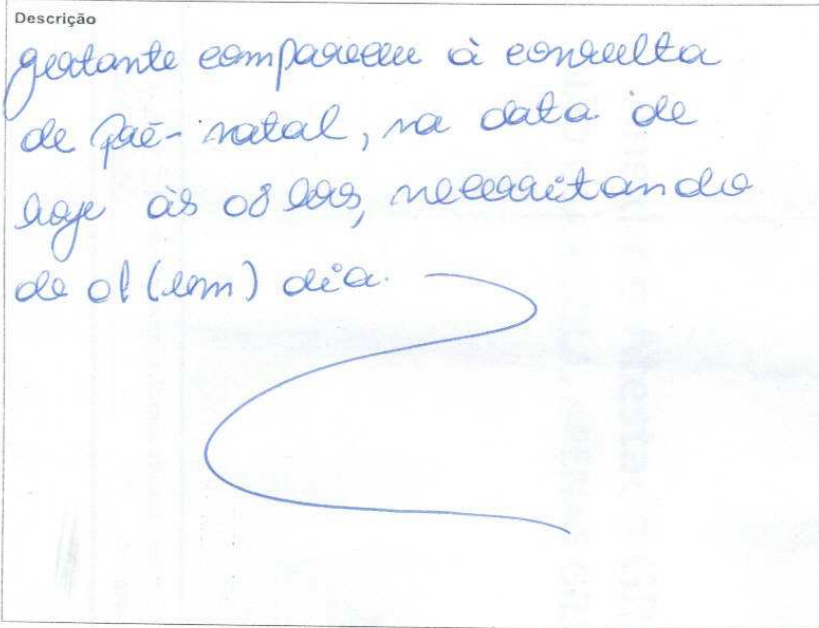 Descrição
gestante compareceu à consulta
de pré-natal, na data de
hoje às 08 hrs, necessitando
de 01 (um) dia.